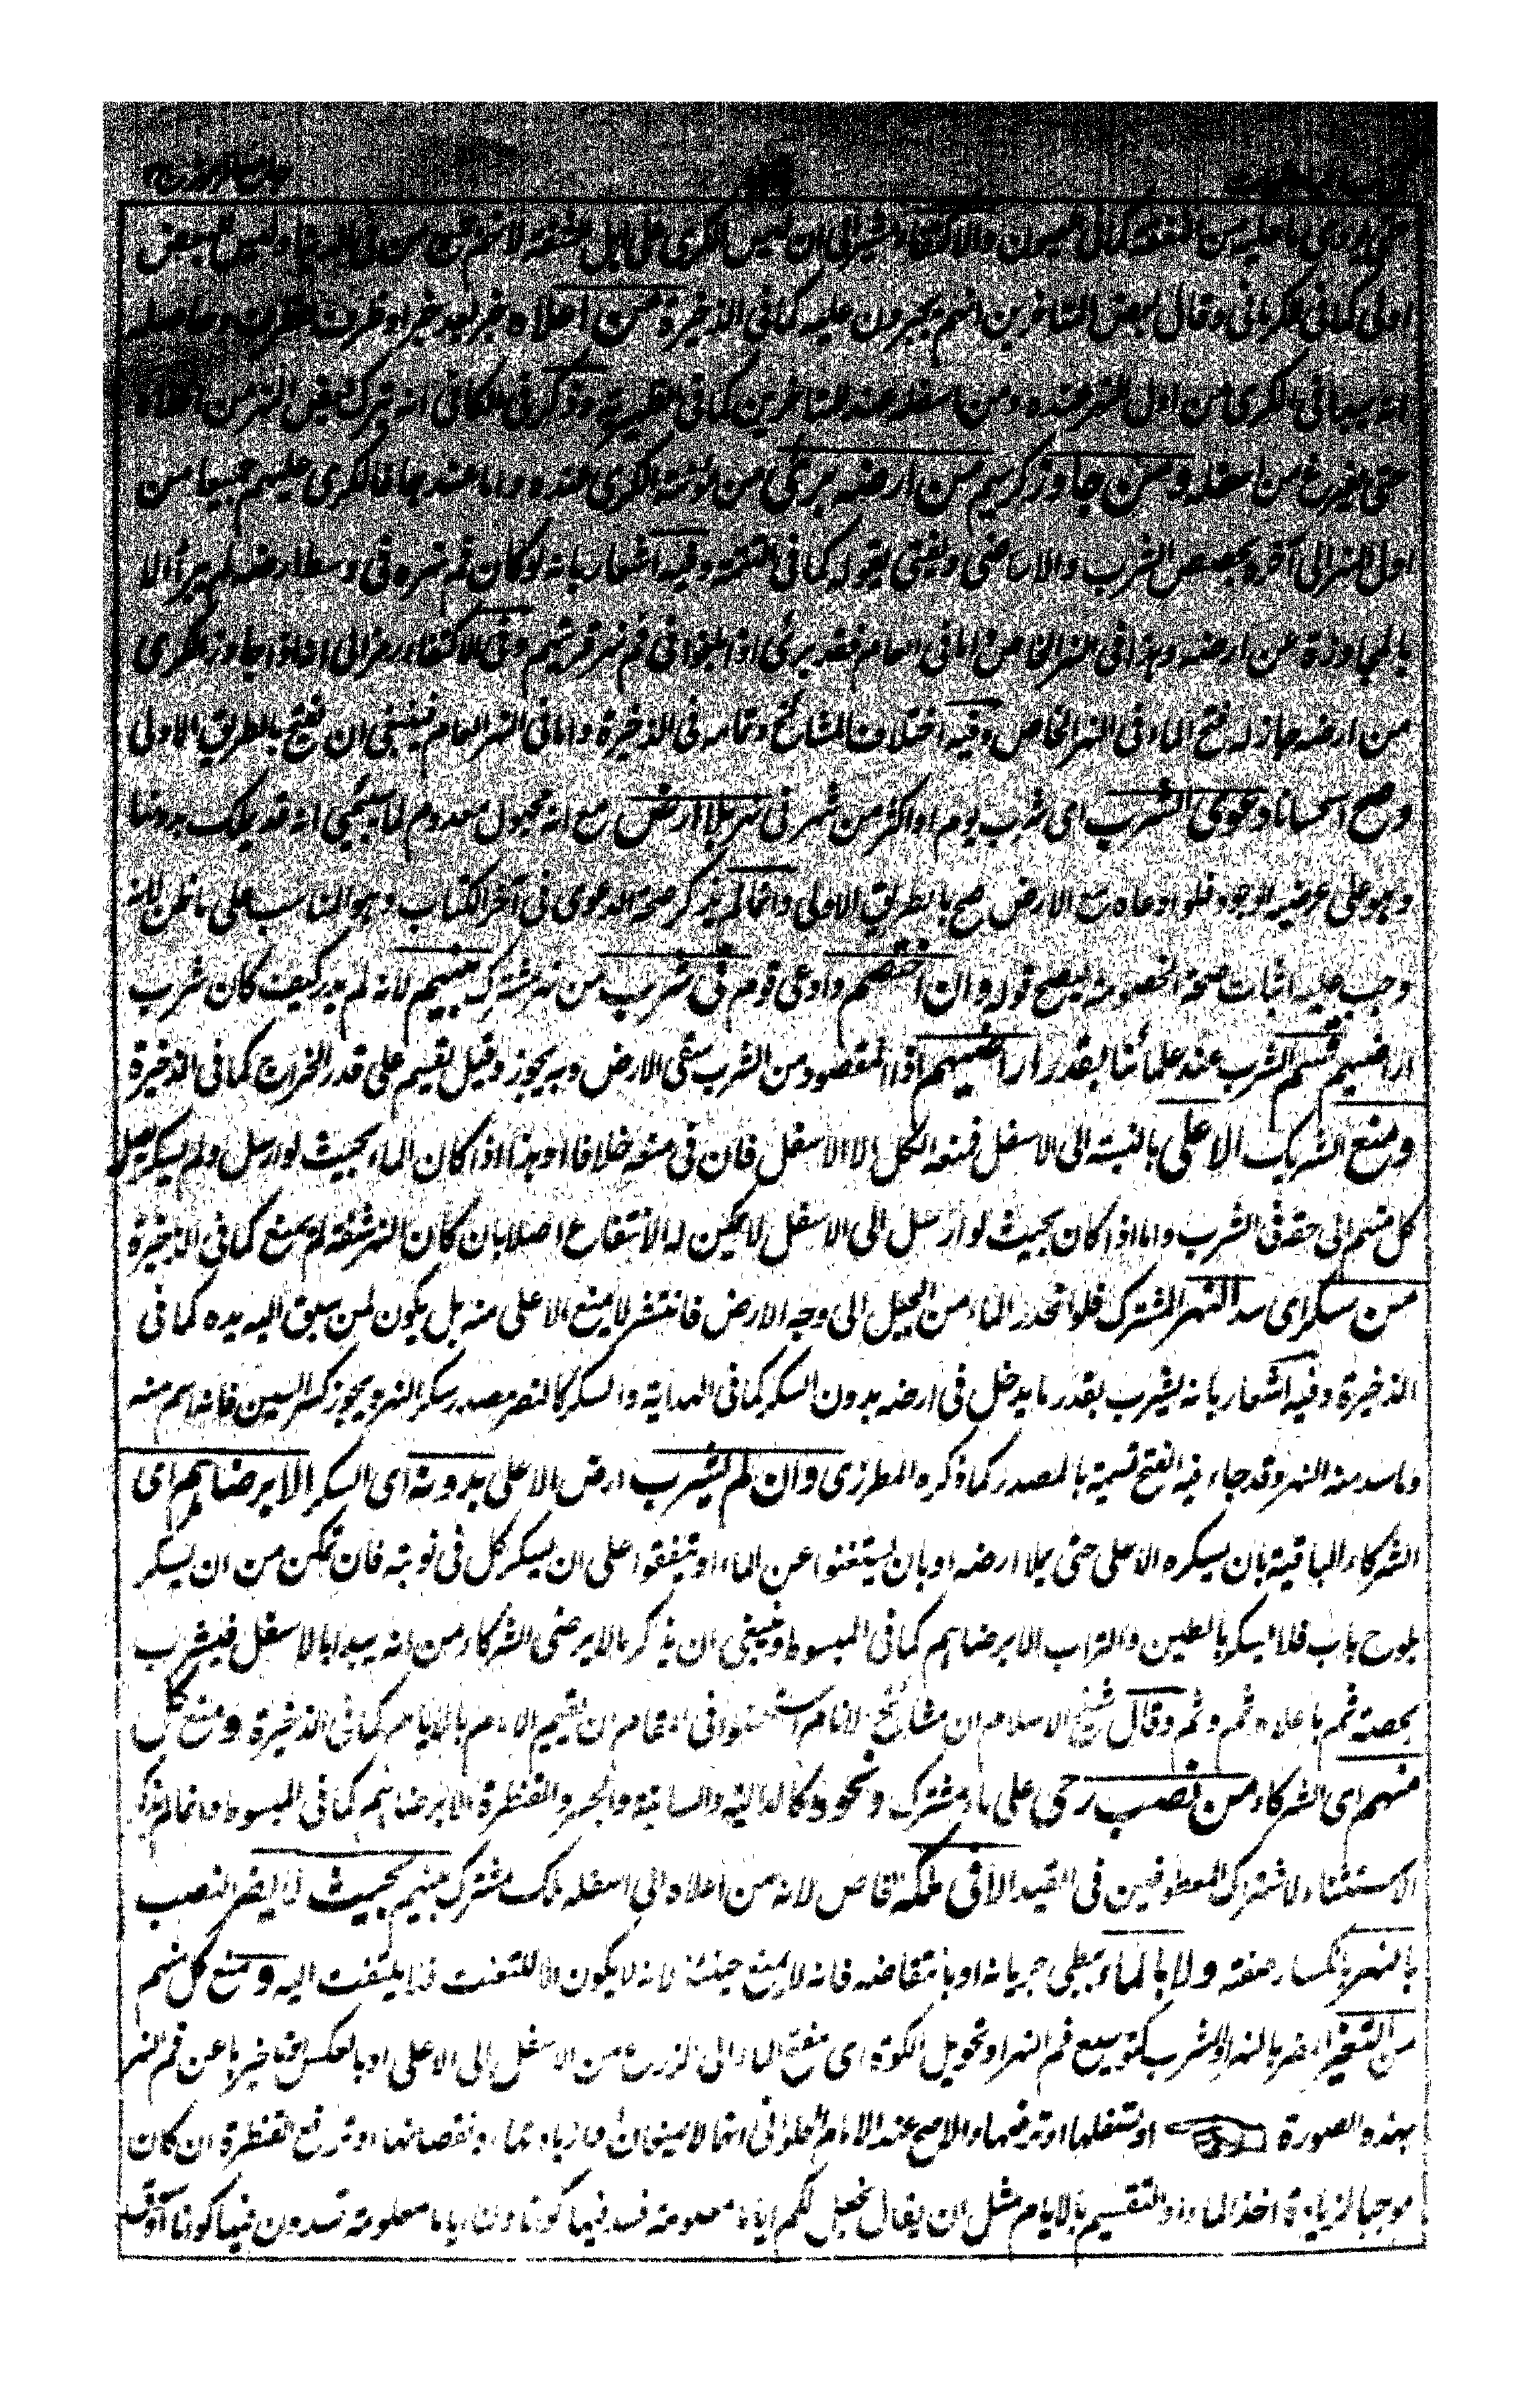 حتى يؤدى ما عليه من النفقة كما فى العيون والاكتفاء مشير الى ان ليس الكرى على اهل الشفة لانهم
اولى كما فى الكرمانى وقال بعض المتاخرين انهم يجبرون عليه كما فى الذخيرة من اعلاه خبر بعد خبر او ظرف وحاصله
انه يبدأ فى الكرى من اول النهر عنده ومن اسفله عند المتاخرين كما فى الظهيرية وذكر فى الكافى انه يترك بعض النهر من اعلاه
حتى يفرغ من اسفله ومن جاوز كريهم من ارضه برئ من مؤنة الكرى عنده واما عندهما فالكرى عليهم جميعا من
اول النهر الى آخره بحصص الشرب والاراضى ويفتى بقوله كما فى التتمة وفيه اشعار بانه لو كان فم نهره فى وسط ارضه لم يبرأ الا
بالمجاوزة عن ارضه وهذا فى النهر الخاص اما فى العام فقد برئ اذا بلغوا فى فم نهر قريتهم وفى الاكتفاء رمز الى انه اذا جاوز الكرى
من ارضه جاز له فتح الماء فى النهر الخاص وفيه اختلاف المشائخ وتمامه فى الذخيرة واما فى النهر العام فينبغى ان يفتح بالطريق الاولى
وصح استحسانا دعوى الشرب اى شرب يوم او اكثر من شهر فى نهر بلا ارض مع انه مجهول معدوم لما سيجئ انه قد يملك بدونها
وهو على عرضية الوجود فلو ادعاه مع الارض صح بالطريق الاولى وانما لم يذكر صحة الدعوى فى آخر الكتاب وهو المناسب على ما ظن لانه
وجب عليه اثبات صحة الخصومة ليصح قوله وان اختصم وادعى قوم فى شرب من نهر مشترك بينهم لانه لم يدر كيف كان شرب
اراضيهم قسم الشرب عند علمائنا بقدر اراضيهم اذ المقصود من الشرب سقى الارض وبه يجوز وقيل يقسم على قدر الخراج كما فى الذخيرة
ومنع الشريك الاعلى بالنسبة الى الاسفل فمنعه الكل لا الاسفل فان فى منعه خلافا وهذا اذا كان الماء بحيث لو ارسل ولم يسكر يصل
كل منهم الى حقه فى الشرب واما اذا كان بحيث لو ارسل الى الاسفل لا يمكن له الانتفاع اصلا بان كان النهر نشفة لم يمنع كما فى الذخيرة
من سكر اى سد النهر المشترك فلو انحدر الماء من الجبل الى وجه الارض فانتشر لا يمنع الاعلى منه بل يكون لمن سبق اليه يده كما فى
الذخيرة وفيه اشعار بانه يشرب بقدر ما يدخل فى ارضه بدون السكر كما فى الهداية والسكر كالنصر مصدر سكر النهر ويجوز كسر السين فانه اسم منه
وما سد منه النهر وقد جاء فيه الفتح تسمية بالمصدر كما ذكره المطرزى وان لم يشرب ارض الاعلى بدونه اى السكر الا برضاهم اى
الشركاء الباقية بان يسكره الاعلى حتى يملا ارضه او بان يستغنوا عن الماء او يتفقوا على ان يسكر كل فى نوبته فان تمكن من ان يسكر
بلوح باب فلا يسكر بالطين والتراب الا برضاهم كما فى المبسوط وينبغى ان يذكر بالا برضى الشركاء من انه يبدا بالاسفل فيشرب
بحصة ثم باعلاه ثم وثم وقال شيخ الاسلام ان مشائخ الانام استحسنوا فى المقام ان يقسم الامام بالايام كما فى الذخيرة ومنع كل
منهم اى الشركاء من نصب رحى على ماء مشترك ونحوه كالدالية والسانية والجسر والقنطرة الا برضاهم كما فى المبسوط وانما لم يذكر
الاستثناء لاشتراك المعطوفين فى القيد الا فى ملكه الخاص لانه من اعلاه الى اسفله ملك مشترك بينهم بحيث لا يضر النصب
بالنهر بانكسار ضفته ولا بالماء بتبطى جريانه او بانتقاضه فانه لا يمنع حينئذ لانه لا يكون الا للتعنت فلا يلتفت اليه ومنع كل منهم
من التغير المضر بالنهر او الشرب كتوسيع فم النهر او تحويل الكوة اى مفتح الماء الى الزرع من الاسفل الى الاعلى او بالعكس فتاخيرها عن فم النهر
بهذه الصورة او تسفلها او ترفعها والاصح عند الامام الحلوانى انهما لا يمنعان وازديادها ونقصانها او ترفع القنطرة ان كان
موجبا لزيادة اخذ الماء والتقسيم بالايام مثل ان يقال نجعل لكم اياما معلومة نسد فيها كونا ولنا اياما معلومة تسدون فيها كونا